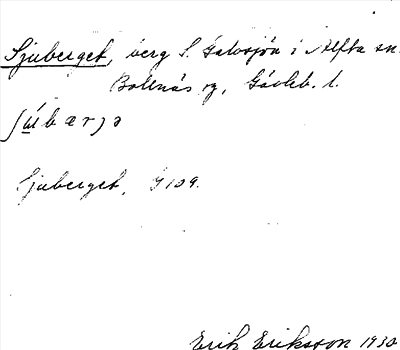 Sjuberget, berg S. Galvsjön i Alfta sn.
Bollnäs rg, Gävleb. l.
ʃúbærjə
Sjuberget, G 109.
Erik Eriksson 1930